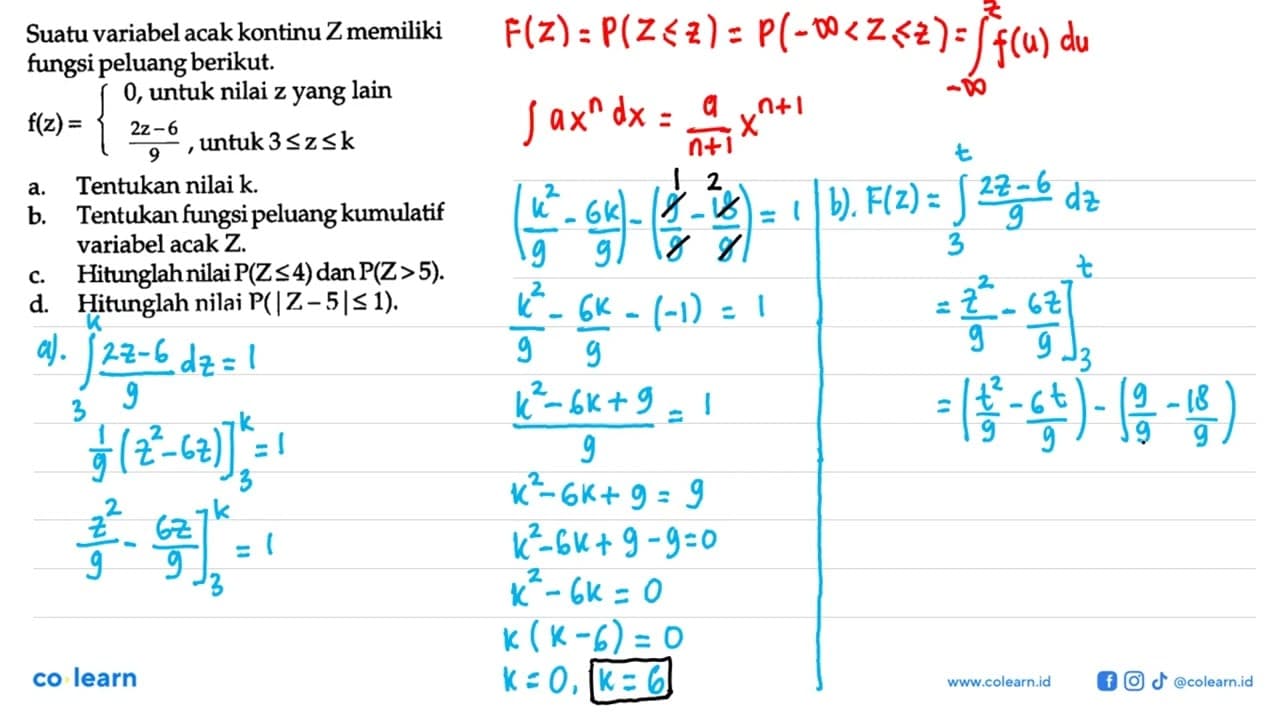 Suatu variabel acak kontinu Z memiliki
fungsi peluang berikut.
f(z) = { 0, untuk nilai z yang lain
2z-6/9, untuk 3≤z≤k
a. Tentukan nilai k.
b. Tentukan fungsi peluang kumulatif
variabel acak Z.
c. Hitunglah nilai P(Z≤4) dan P(Z>5).
d. Hitunglah nilai P(|Z-5|≤1).
a). ∫₃ᵏ 2z-6/9 dz = 1
1/9 (z²-6z)]₃ᵏ = 1
z²/9 - 6z/9]₃ᵏ = 1
F(Z) = P(Z≤z) = P(-∞<Z≤z) = ∫_{-∞}^{z} f(u) du
∫axⁿ dx = a/n+1 xⁿ⁺¹
1 2
(k²/9 - 6k/9) - (9/9 - 18/9) = 1
k²/9 - 6k/9 - (-1) = 1
k²-6k+9/9 = 1
k²-6k+9 = 9
k²-6k+9-9=0
k²-6k = 0
k(k-6) = 0
k=0, k=6
b). F(z) = ∫₃ᵗ 2z-6/9 dz
= z²/9 - 6z/9]₃ᵗ
= (t²/9 - 6t/9) - (9/9 - 18/9)
co learn
www.colearn.id
@colearn.id